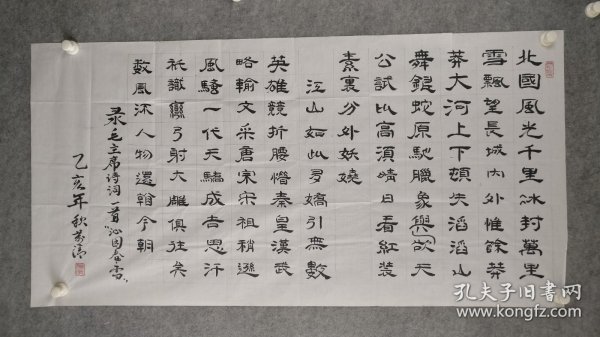 北國風光千里冰封萬里
雪飄望長城內外惟餘莽
莽大河上下頓失滔滔山
舞銀蛇原馳臘象與欲天
公試比高須晴日看紅裝
素裹分外妖嬈
江山如此多嬌引無數
英雄競折腰惜秦皇漢武
略輸文采唐宗宋祖稍遜
風騷一代天驕成吉思汗
祇識彎弓射大雕俱往矣
數風流人物還看今朝
录毛主席诗词一首沁园春雪
乙亥年秋
孔夫子旧书网
www.kongfz.com